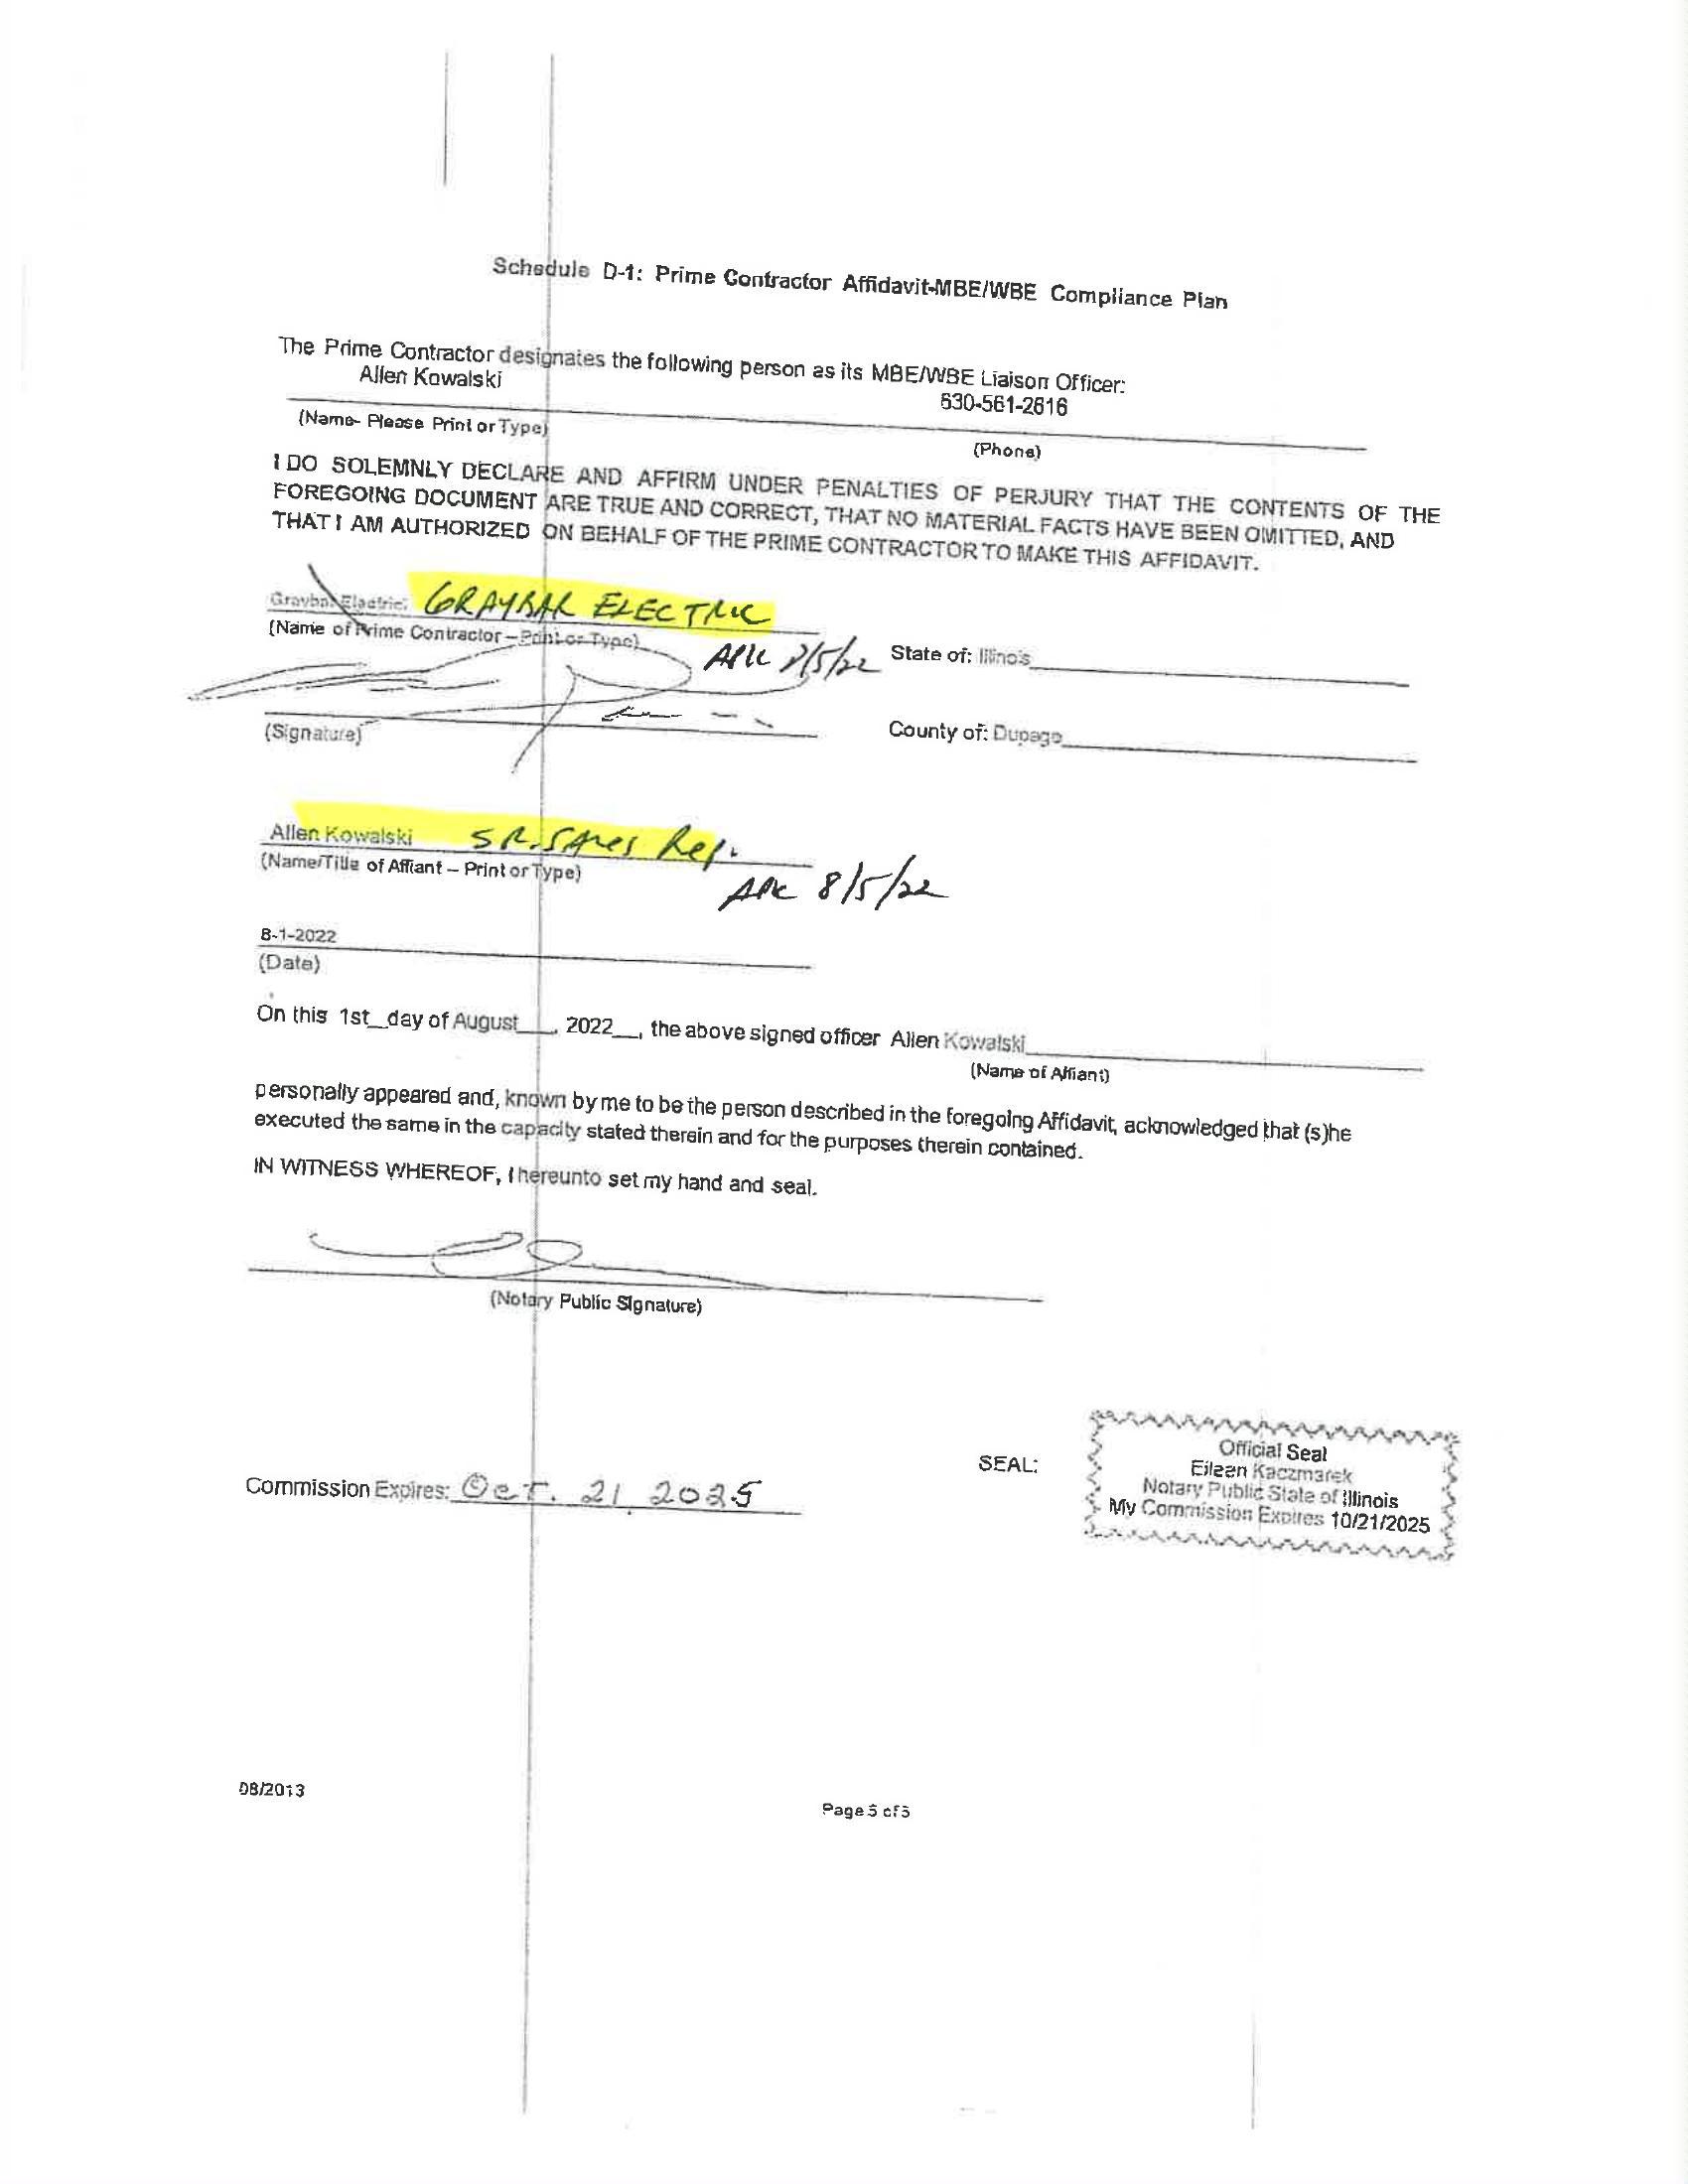 Schedule D-1: Prime Contractor Affidavit-MBE/WBE Compliance Plan
The Prime Contractor designates the following person as its MBE/WBE Liaison Officer:
Allen Kowalski 630-561-2616
(Name- Please Print or Type) (Phone)
I DO SOLEMNLY DECLARE AND AFFIRM UNDER PENALTIES OF PERJURY THAT THE CONTENTS OF THE
FOREGOING DOCUMENT ARE TRUE AND CORRECT, THAT NO MATERIAL FACTS HAVE BEEN OMITTED, AND
THAT I AM AUTHORIZED ON BEHALF OF THE PRIME CONTRACTOR TO MAKE THIS AFFIDAVIT.
Graybar Electric: GRAYBAR ELECTRIC
(Name of Prime Contractor – Print or Type)
APK 8/5/22 State of: Illinois
(Signature) County of: Dupage
Allen Kowalski SR. SALES Rep.
(Name/Title of Affiant – Print or Type)
APK 8/5/22
8-1-2022
(Date)
On this 1st_day of August___, 2022__, the above signed officer Allen Kowalski
(Name of Affiant)
personally appeared and, known by me to be the person described in the foregoing Affidavit, acknowledged that (s)he
executed the same in the capacity stated therein and for the purposes therein contained.
IN WITNESS WHEREOF, I hereunto set my hand and seal.
(Notary Public Signature)
SEAL:
Official Seal
Eileen Kaczmarek
Notary Public State of Illinois
My Commission Expires 10/21/2025
Commission Expires: Oct. 21, 2025
08/2013
Page 5 of 5